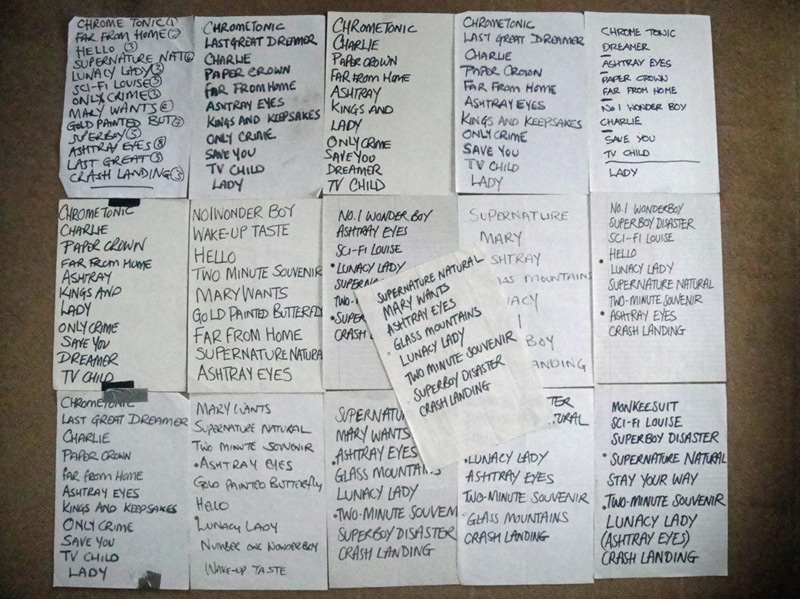 CHROME TONIC
FAR FROM HOME
HELLO ③
SUPERNATURE NAT
LUNACY LADY
SCI-FI LOUISE
ONLY CRIME
MARY WANTS
GOLD PAINTED BUT
SUPERBOY
ASHTRAY EYES
LAST GREAT
CRASH LANDING
CHROMETONIC
LAST GREAT DREAMER
CHARLIE
PAPER CROWN
FAR FROM HOME
ASHTRAY EYES
KINGS AND KEEPSAKES
ONLY CRIME
SAVE YOU
TV CHILD
LADY
CHROMETONIC
CHARLIE
PAPER CROWN
FAR FROM HOME
ASHTRAY
KINGS AND
LADY
ONLY CRIME
SAVE YOU
DREAMER
TV CHILD
CHROMETONIC
LAST GREAT DREAMER
CHARLIE
PAPER CROWN
FAR FROM HOME
ASHTRAY EYES
KINGS AND KEEPSAKES
ONLY CRIME
SAVE YOU
TV CHILD
LADY
CHROME TONIC
DREAMER
ASHTRAY EYES
PAPER CROWN
FAR FROM HOME
No 1 WONDER BOY
CHARLIE
SAVE YOU
TV CHILD
LADY
CHROMETONIC
CHARLIE
PAPER CROWN
FAR FROM HOME
ASHTRAY
KINGS AND
LADY
ONLY CRIME
SAVE YOU
DREAMER
TV CHILD
NO1 WONDER BOY
WAKE-UP TASTE
HELLO
TWO MINUTE SOUVENIR
MARY WANTS
GOLD PAINTED BUTTERFLY
FAR FROM HOME
SUPERNATURA
ASHTRAY EYES
NO.1 WONDERBOY
ASHTRAY EYES
SCI-FI LOUISE
• LUNACY LADY
SUPERNA
TWO-
• SUPE
CRASH L
SUPERNATURE
MARY
SHTRAY
LASS MOUNTAINS
ACY
BOY
ANDING
SUPERNATURE NATURAL
MARY WANTS
ASHTRAY EYES
• GLASS MOUNTAINS
LUNACY LADY
TWO MINUTE SOUVENIR
SUPERBOY DISASTER
CRASH LANDING
NO.1 WONDERBOY
SUPERBOY DISASTER
SCI-FI LOUISE
• HELLO
LUNACY LADY
SUPERNATURE NATURAL
TWO-MINUTE SOUVENIR
• ASHTRAY EYES
CRASH LANDING
CHROMETONIC
LAST GREAT DREAMER
CHARLIE
PAPER CROWN
FAR FROM HOME
ASHTRAY EYES
KINGS AND KEEPSAKES
ONLY CRIME
SAVE YOU
TV CHILD
LADY
MARY WANTS
SUPERNATURE NATURAL
TWO MINUTE SOUVENIR
• ASHTRAY EYES
GOLD PAINTED BUTTERFLY
HELLO
LUNACY LADY
NUMBER ONE WONDERBOY
WAKE-UP TASTE
SUPERNATU
MARY WANTS
• ASHTRAY EYES
GLASS MOUNTAINS
LUNACY LADY
• TWO-MINUTE SOUVEN
SUPERBOY DISASTER
CRASH LANDING
TER
URAL
• LUNACY LADY
ASHTRAY EYES
TWO-MINUTE SOUVENIR
• GLASS MOUNTAINS
CRASH LANDING
MONKEESUIT
SCI-FI LOUISE
SUPERBOY DISASTER
• SUPERNATURE NATURAL
STAY YOUR WAY
• TWO-MINUTE SOUVENIR
LUNACY LADY
(ASHTRAY EYES)
CRASH LANDING